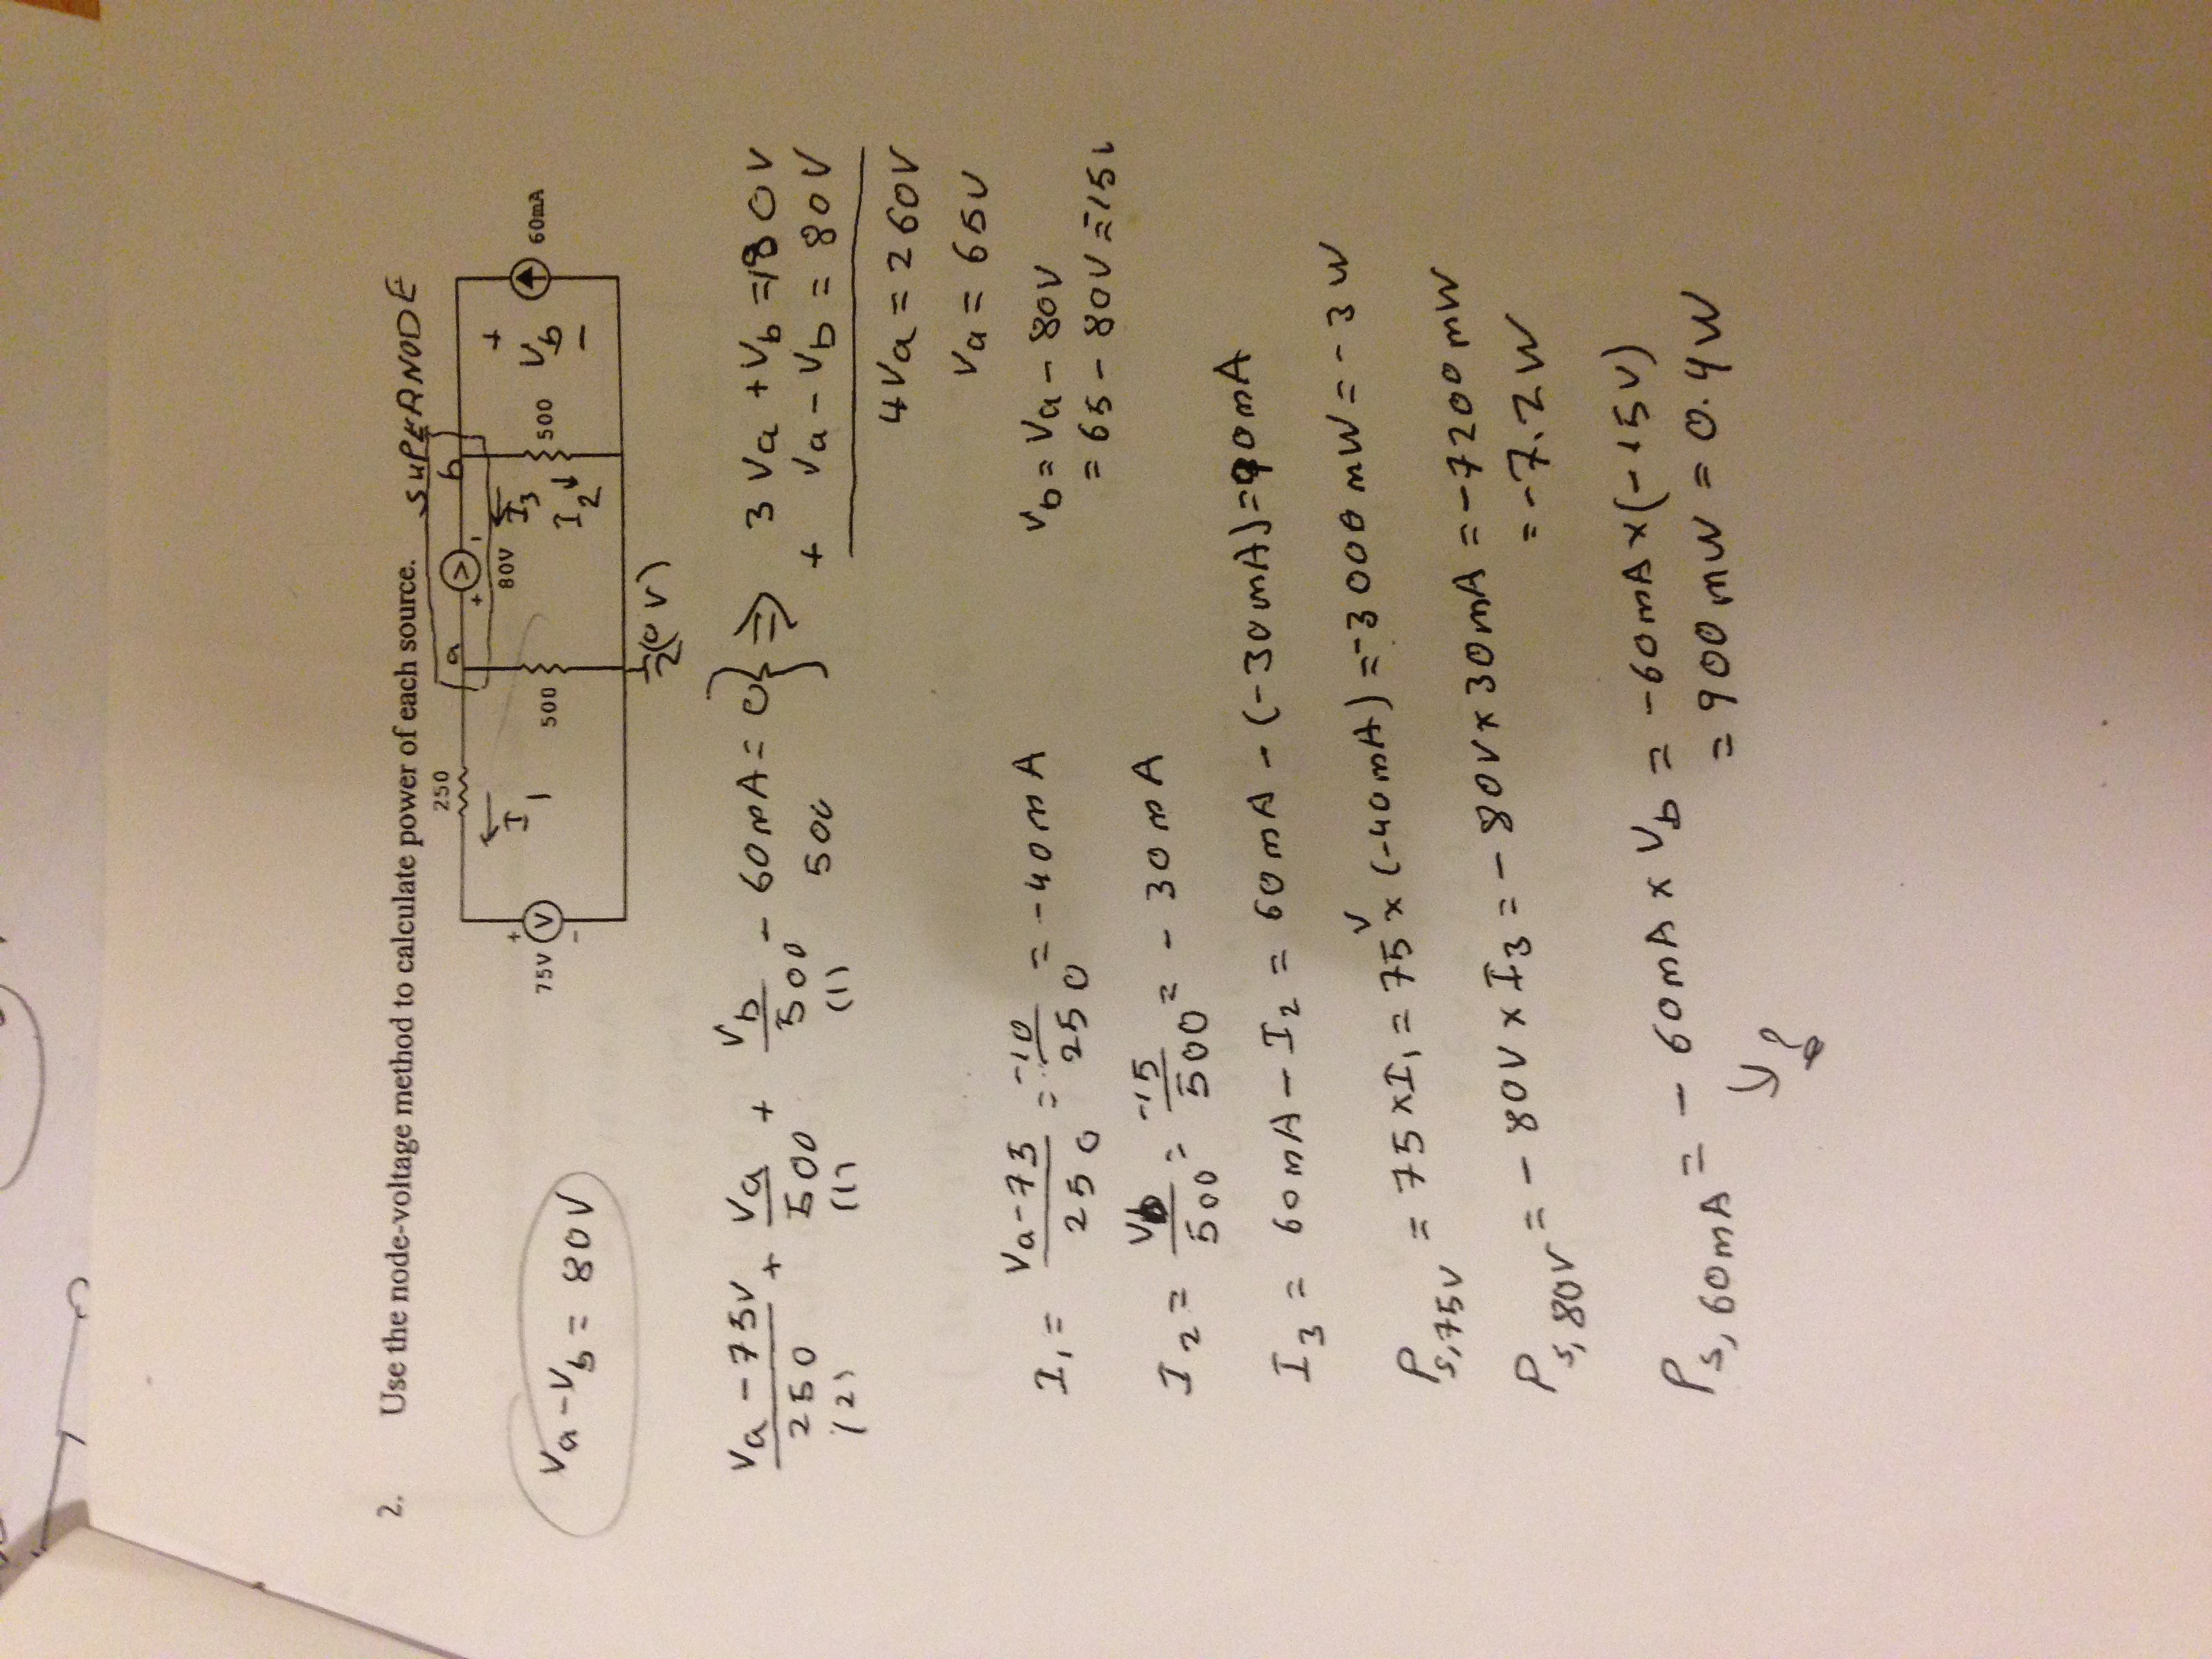 2. Use the node-voltage method to calculate power of each source.
SUPERNODE
250
a
b
+
-
80V
I1
I3
75V
+
V
-
500
I2
500
+
Vb
-
60mA
(0V)
Va - Vb = 80V
(Va - 75V)/250 + Va/500 + Vb/500 - 60mA = 0 } ⇒ 3Va + Vb = 180V
(2) (1) (1) 500
+ Va - Vb = 80V
4Va = 260V
Va = 65V
Vb = Va - 80V
= 65 - 80V = -15V
I1 = (Va - 75)/250 = -10/250 = -40mA
I2 = Vb/500 = -15/500 = -30mA
I3 = 60mA - I2 = 60mA - (-30mA) = 90mA
Ps,75V = 75 x I1 = 75V x (-40mA) = -3000mW = -3W
Ps,80V = - 80V x I3 = - 80V x 30mA = -7200mW
= -7.2W
Ps,60mA = - 60mA x Vb = -60mA x (-15V)
= 900mW = 0.9W